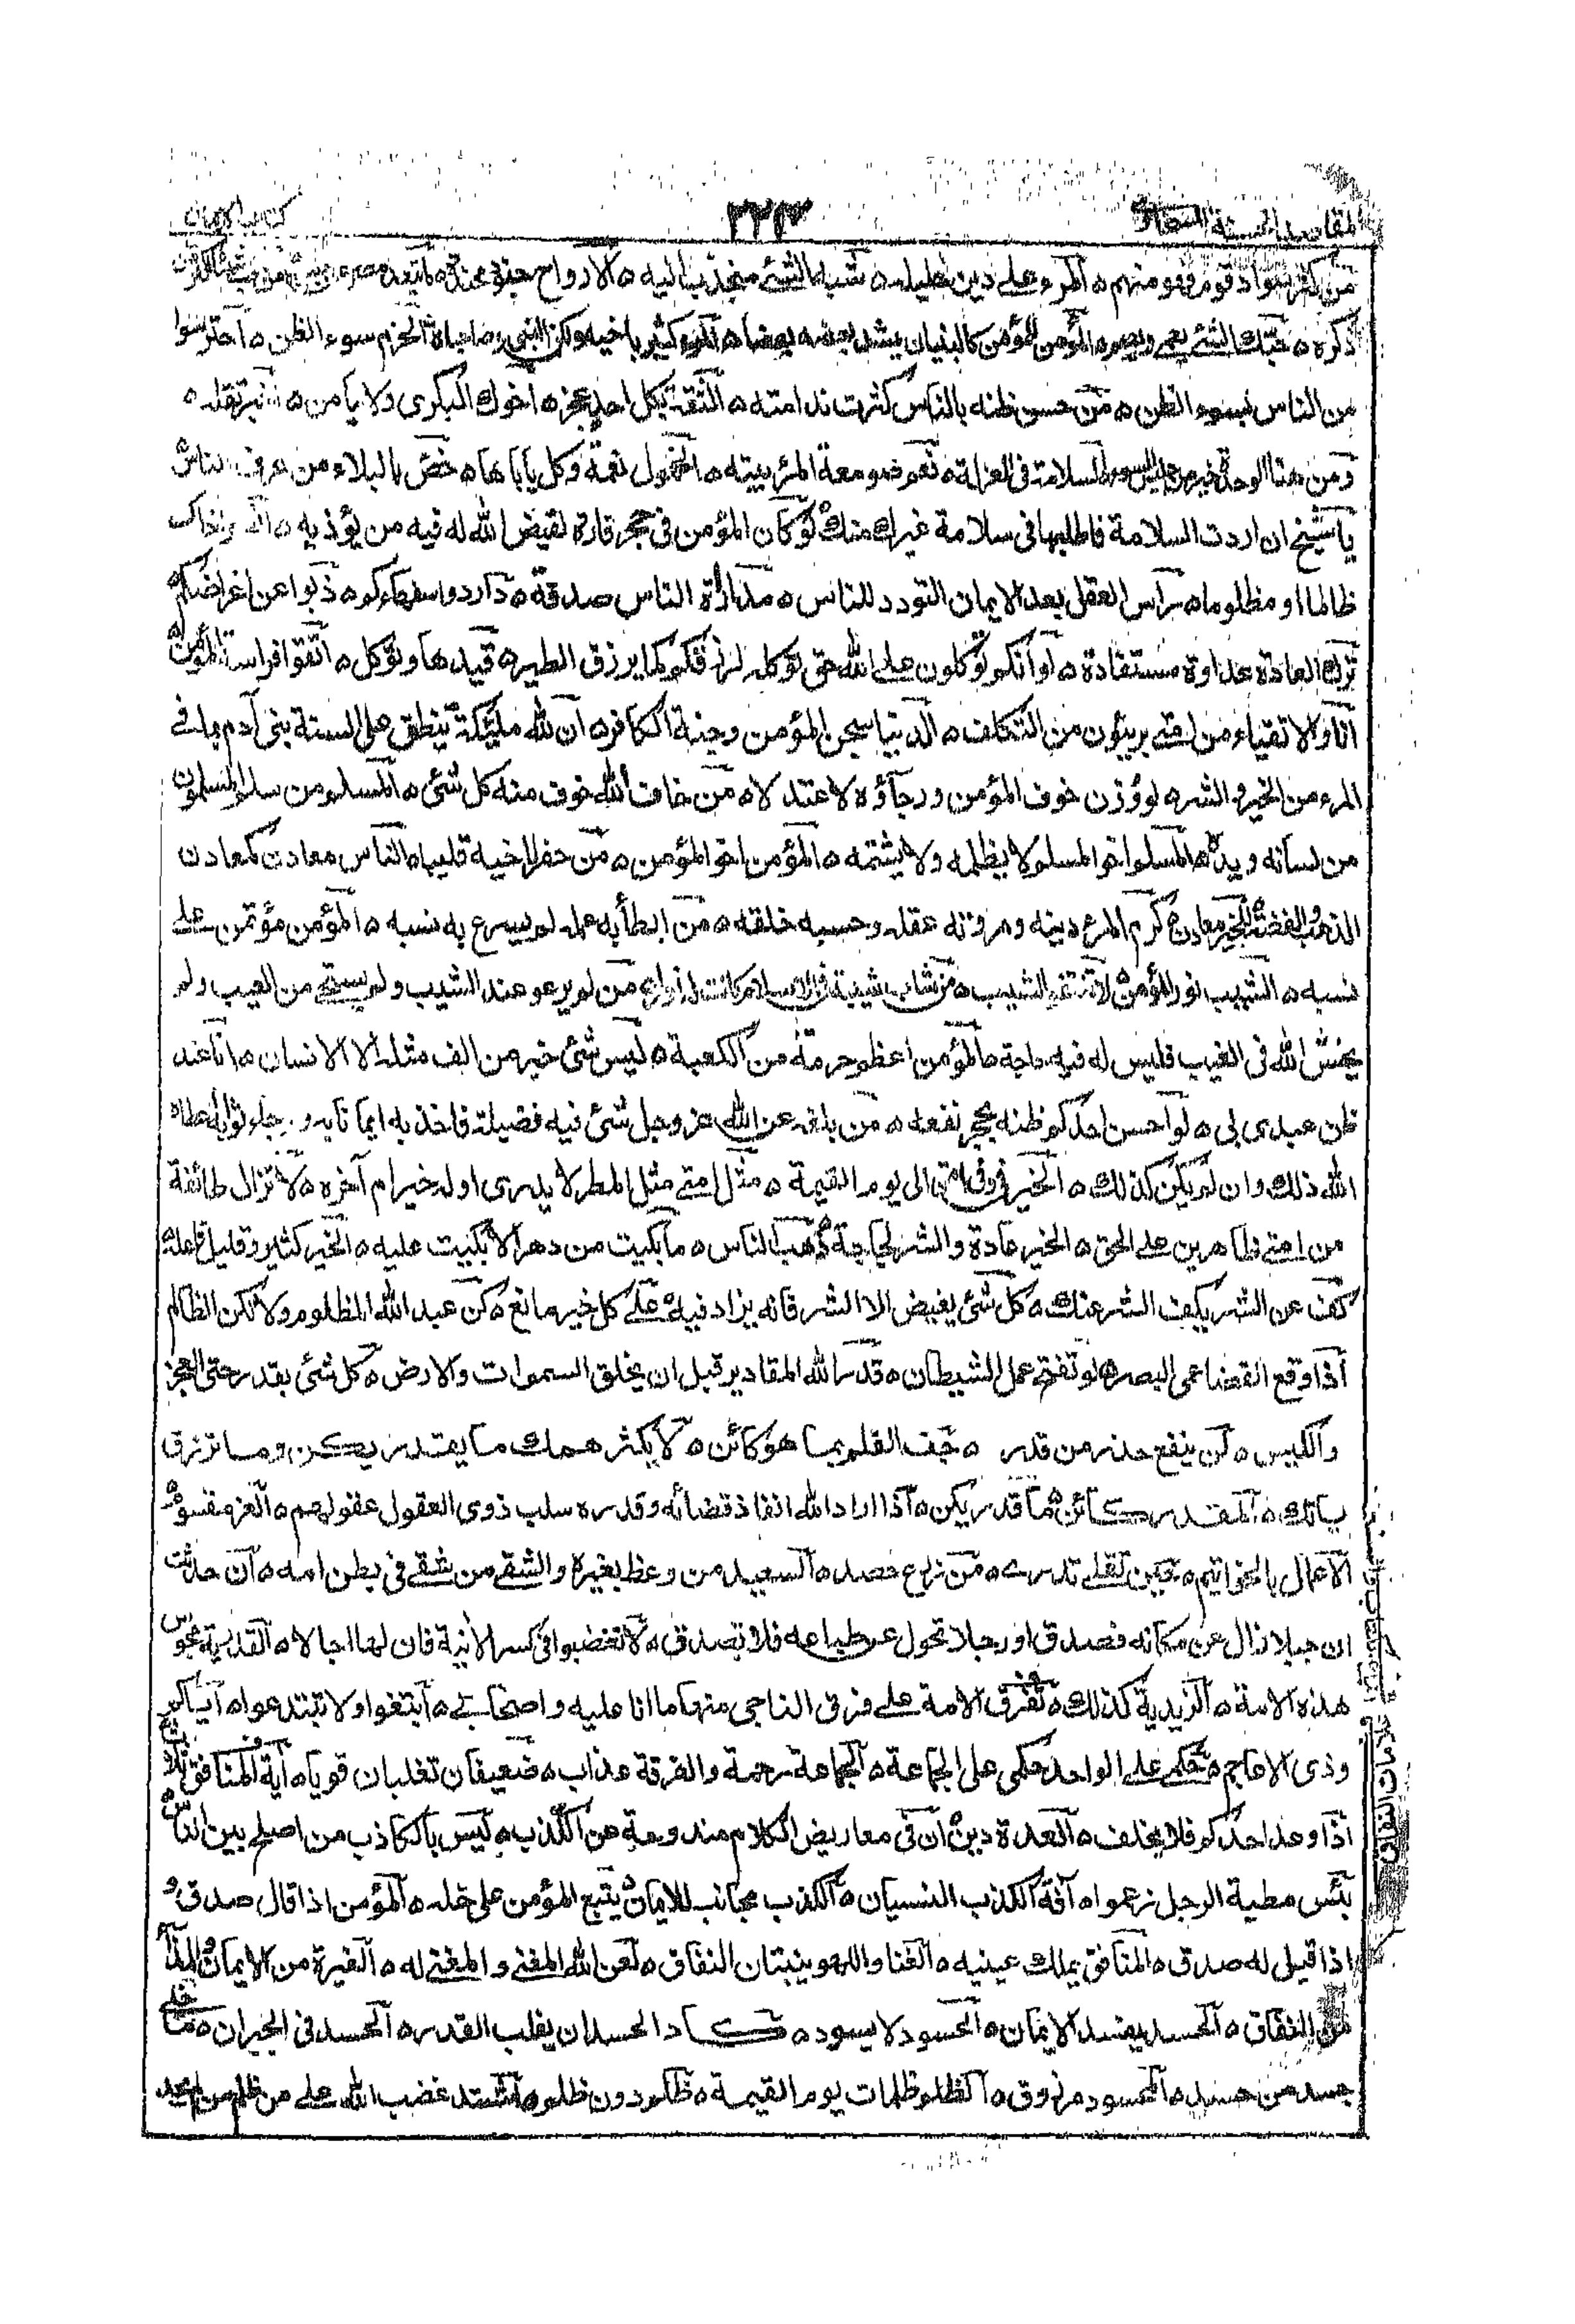 المقاصد الحسنة للسخاوى ٢٢٣ كتاب الايمان
من كثر سواد قوم فهو منهم ه المرء على دين خليله ه شبه الشئ منجذب اليه ه الارواح جنود مجندة ه من احب شيئا اكثر من
ذكره ه حبك الشئ يعمى ويصم ه المؤمن للمؤمن كالبنيان يشد بعضه بعضا ه المرء كثير باخيه ه الحزم سوء الظن ه احترسوا
من الناس بسوء الظن ه من حسن ظنه بالناس كثرت ندامته ه الثقة بكل احد عجز ه اخوك البكرى ولا يأمن ه اخبر تقله ه
الوحدة خير من جليس السوء السلامة فى العزلة ه نعم صومعة المرء بيته ه الخمول نعمة وكل يأباها ه خص بالبلاء من عرف الناس
يا شيخ ان اردت السلامة فاطلبها فى سلامة غيرك منك ه لو كان المؤمن فى جحر فارة لقيض الله له فيه من يؤذيه ه انصر اخاك
ظالما او مظلوما ه رأس العقل بعد الايمان التودد للناس ه مداراة الناس صدقة ه داروا سفهاءكم ه ذبوا عن اعراضكم
ترك العادة عداوة مستفادة ه لو انكم توكلون على الله حق توكله لرزقكم كما يرزق الطير ه قيدها وتوكل ه اتقوا فراسة المؤمن
انا والاتقياء من امتى بريئون من التكلف ه الدنيا سجن المؤمن وجنة الكافر ه ان لله ملئكة ينطق على السنة بنى آدم بما فى
المرء من الخير والشر ه لو وزن خوف المؤمن ورجاؤه لاعتدلا ه من خاف الله خوف منه كل شئ ه المسلم من سلم المسلمون
من لسانه ويده ه المسلم اخو المسلم لا يظلمه ولا يشتمه ه المؤمن اخو المؤمن ه من حفر لاخيه قليبا ه الناس معادن كمعادن
الذهب والفضة ه كرم المرء دينه ومروته عقله وحسبه خلقه ه من ابطأ به عمله لم يسرع به نسبه ه المؤمن مؤتمن على
نسبه ه الشيب نور المؤمن ه من شاب شيبة فى الاسلام كانت له نورا ه من لم يرعو عند الشيب ولم يستحى من العيب ولم
يخش الله فى الغيب فليس له فيه حاجة ه المؤمن اعظم حرمة من الكعبة ه ليس شئ خير من الف مثله الا الانسان ه انا عند
ظن عبدى بى ه لو احسن احدكم ظنه بحجر نفعه ه من بلغه عن الله عز وجل شئ فيه فضيلة فاخذ به ايمانا به ورجاء ثوابه اعطاه
الله ذلك وان لم يكن كذلك ه الخير فى وفى امتى الى يوم القيمة ه مثل امتى مثل المطر لا يدرى اوله خير ام آخره ه لا تزال طائفة
من امتى ظاهرين على الحق ه الخير عادة والشر لجاجة ه ذهب الناس ه ما بكيت من دهر الا بكيت عليه ه الخير كثير وقليل فاعله
كف عن الشر يكف الشر عنك ه كل شئ يغيض الا الشر فانه يزاد فيه ه على كل خير مانع ه كن عبد الله المظلوم ولا تكن الظالم
اذا وقع القضا عمى البصر ه لو تفتح عمل الشيطان ه قدر الله المقادير قبل ان يخلق السموات والارض ه كل شئ بقدر حتى العجز
والكيس ه لن ينفع حذر من قدر ه جف القلم بما هو كائن ه لا يكثر همك ما يقدر يكن وما ترزق
ياتك ه المقدر كائن ه ما قدر يكن ه اذا اراد الله انفاذ قضائه وقدره سلب ذوى العقول عقولهم ه العز مقسوم
الاعمال بالخواتيم ه من زرع حصد ه السعيد من وعظ بغيره والشقى من شقى فى بطن امه ه ان حدثت
ان جبلا زال عن مكانه فصدق او رجلا تحول عن طباعه فلا تصدق ه لا تغضبوا فى كسر الانية فان لها اجالا ه القدرية مجوس
هذه الامة ه الزيدية كذلك ه تفرق الامة على فرق الناجى منها ما انا عليه واصحابى ه اتبعوا ولا تبتدعوا ه اياكم
وذى الاعاجم ه حكمى على الواحد حكمى على الجماعة ه الجماعة رحمة والفرقة عذاب ه ضعيفان تغلبان قويا ه آية المنافق ثلاث
اذا وعد احدكم فلا يخلف ه العدة دين ه ان فى معاريض الكلام مندوحة عن الكذب ه ليس بالكاذب من اصلح بين الناس
بئس مطية الرجل زعموا ه آفة الكذب النسيان ه الكذب مجانب للايمان ه يتبع المؤمن على خله ه المؤمن اذا قال صدق و
اذا قيل له صدق ه المنافق يملك عينيه ه الغنا واللهو ينبتان النفاق ه لعن الله المغنى والمغنى له ه الغيرة من الايمان والمذاء
من النفاق ه الحسد يفسد الايمان ه الحسود لا يسود ه كاد الحسد ان يغلب القدر ه الحسد فى الجيران ه ما خلى
جسد من حسد ه المحسود مرزوق ه الظلم ظلمات يوم القيمة ه ظلم دون ظلم ه اشتد غضب الله على من ظلم من لم يجد